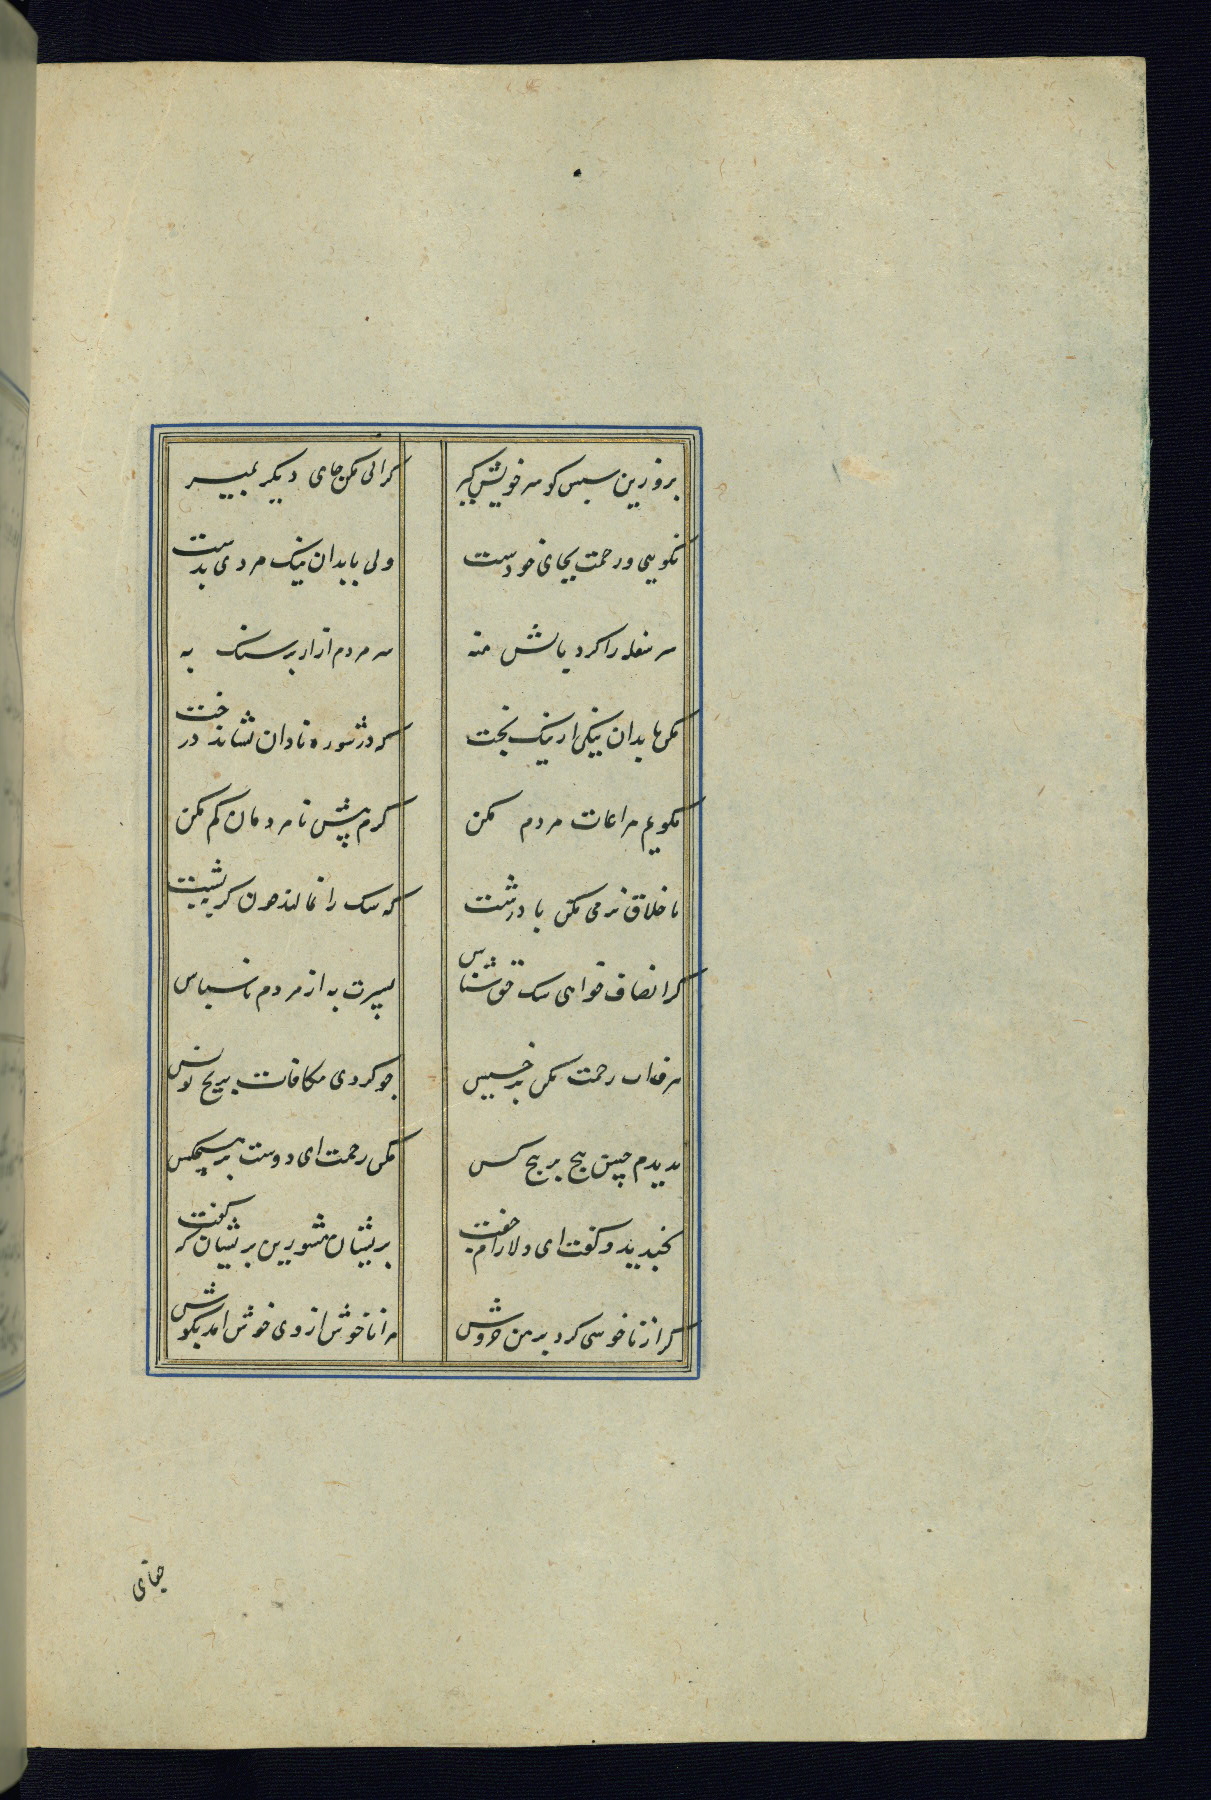 برو زین سپس کو سر خویش گیر گرانی مکن جای دیگر بمیر
نکویی و رحمت بجای خودست ولی با بدان نیک مردی بدست
سر سفله را گرد بالش منه سر مردم ازار بر سنک به
مکن با بدان نیکی ای نیک بخت که در شوره نادان نشاند درخت
نکویم مراعات مردم مکن کرم پیش نامردمان کم مکن
باخلاق نرمی مکن با درشت که سک را نمالند چون کربه پشت
کر انصاف خواهی سک حق شناس بسیرت به از مردم ناسپاس
ببرفاب رحمت مکن بر خسیس چو کردی مکافات بر یخ نویس
ندیدم چنین پیچ بر پیچ کس مکن رحمت ای دوست بر هیچکس
بخندید و کفت ای دلارام جفت پریشان مشو زین پریشان که کفت
کر از ناخوشی کرد بر من خروش مرا ناخوش از وی خوش امد بکوش
جفای